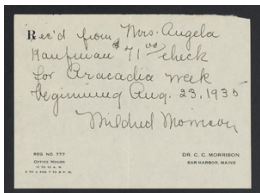 Rec'd from Mrs. Angela
Kaufman $71⁰⁰ check
for Aracadia week
beginning Aug. 23, 1935
Mildred Morrison
REG. NO. 777
OFFICE HOURS
DR. C. C. MORRISON
BAR HARBOR, MAINE